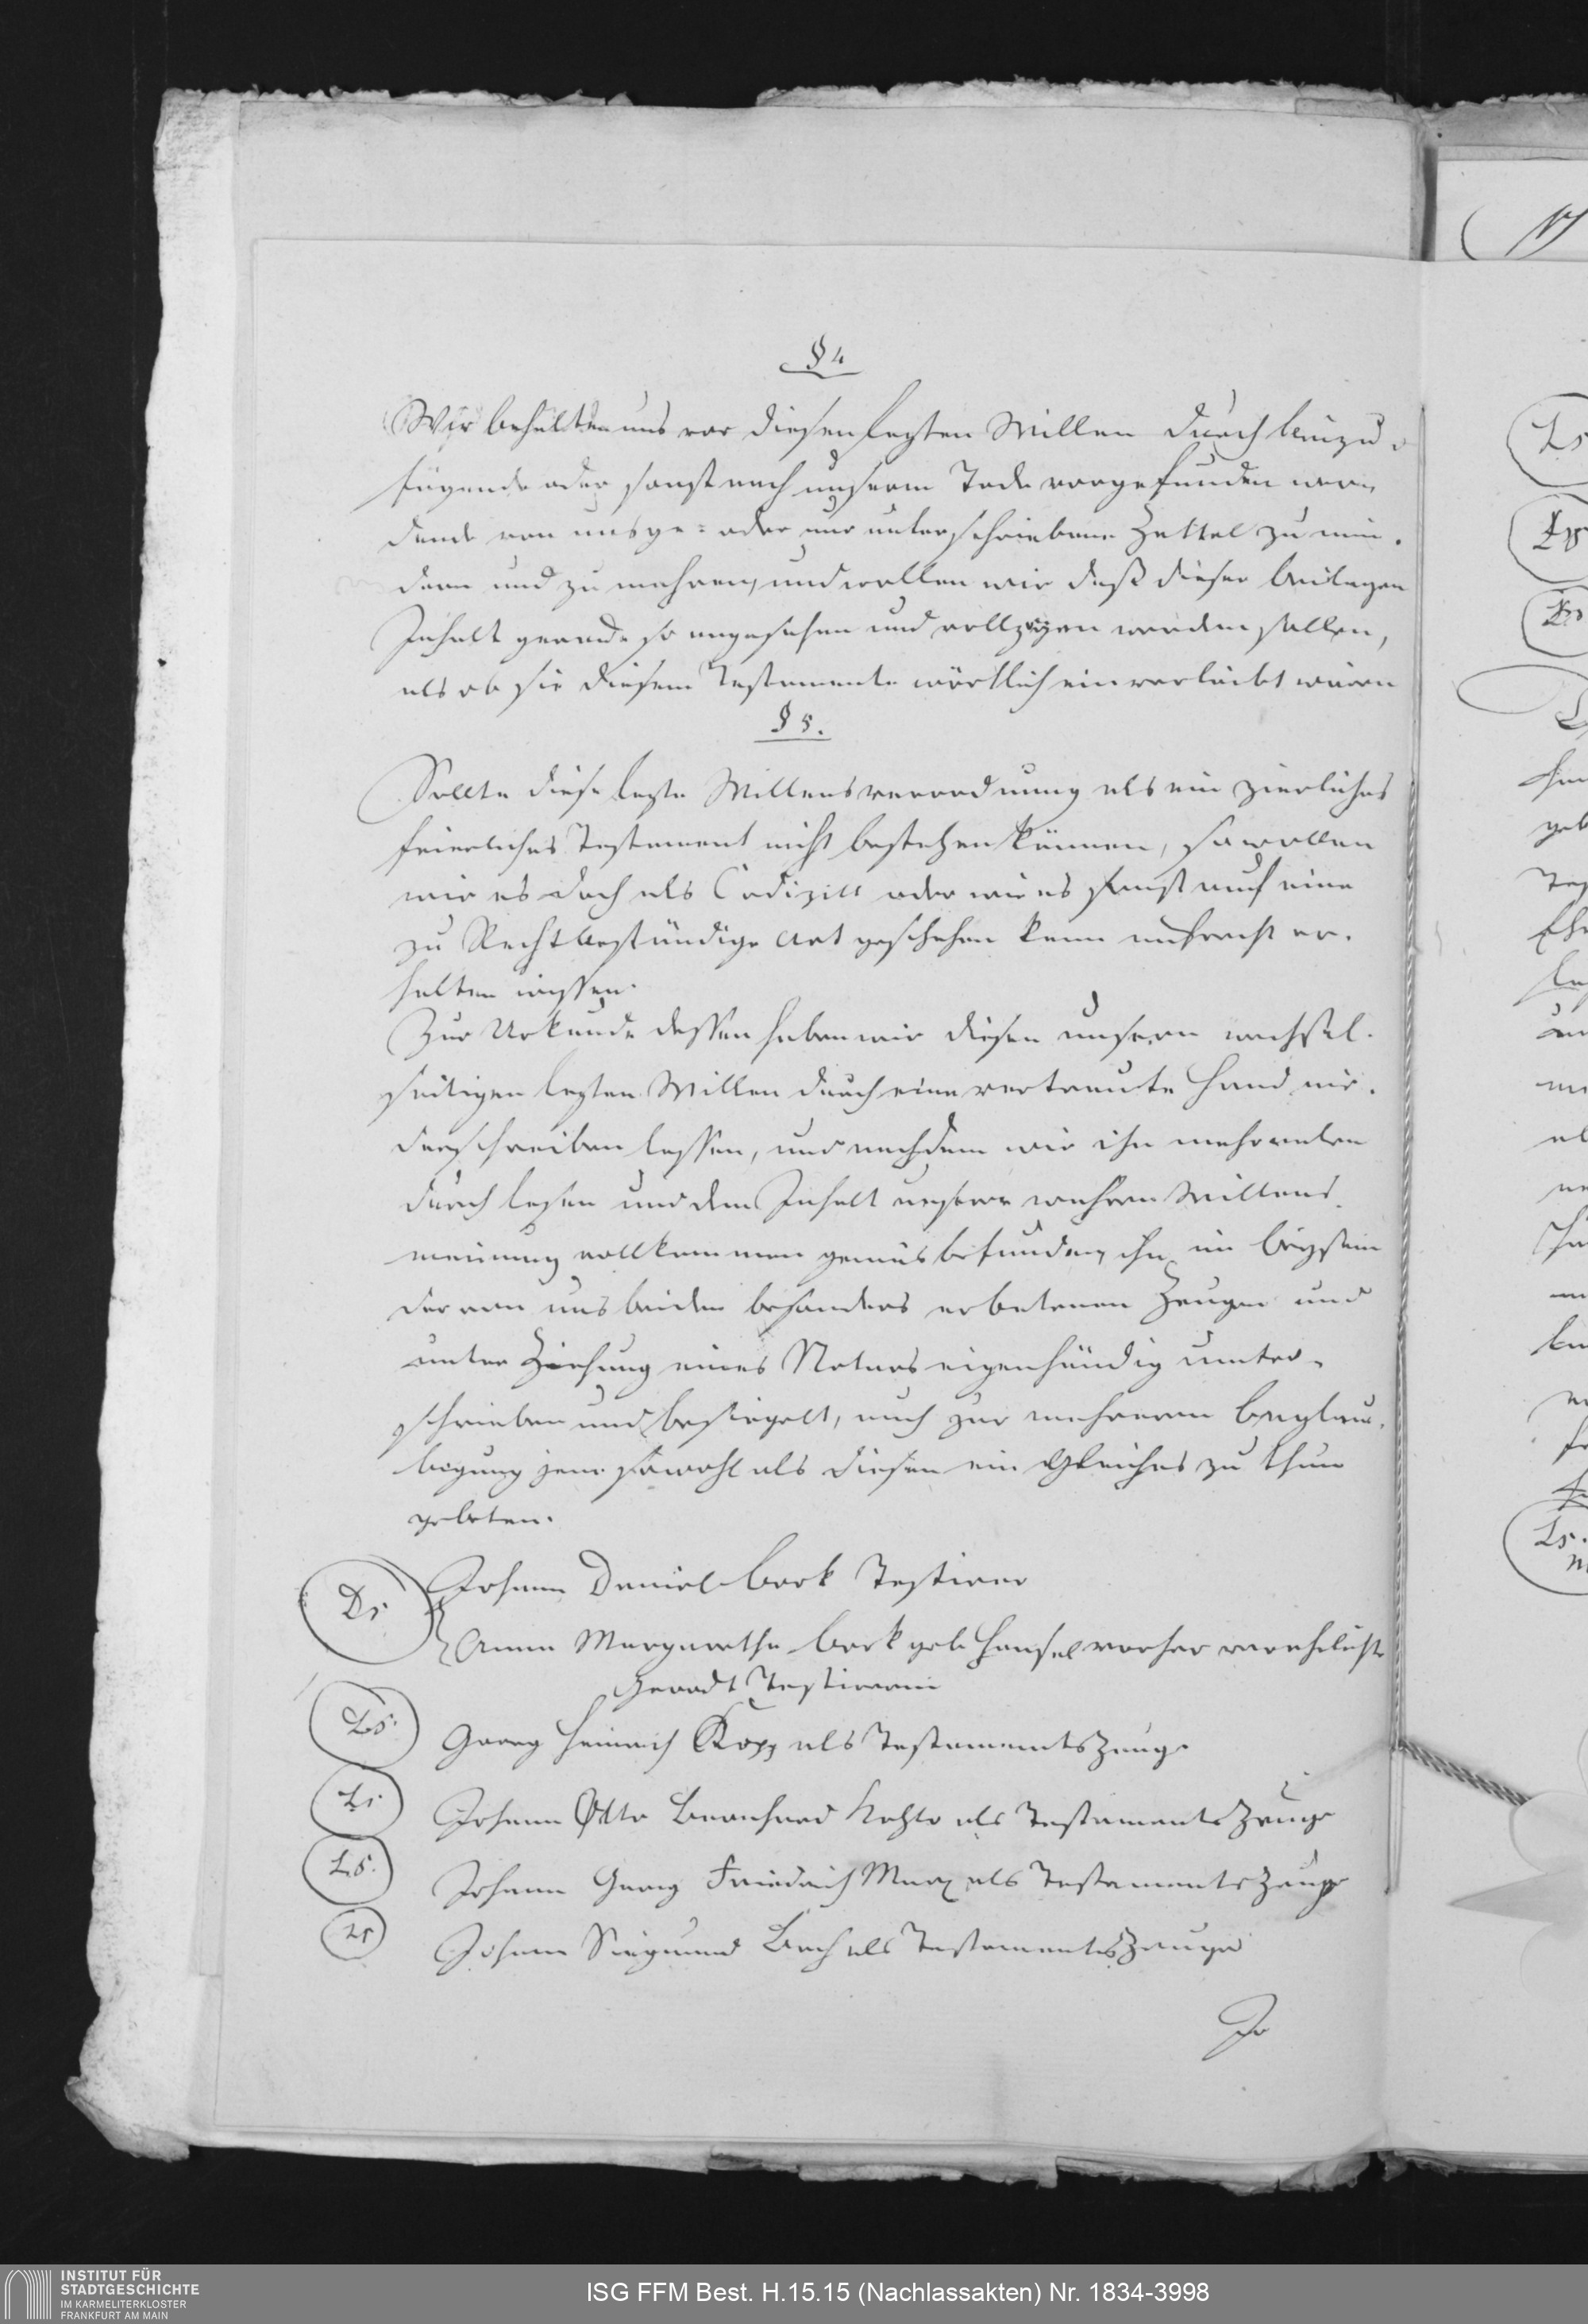 § 4
Wir behalten uns vor diesen letzten Willen durch beizu-
fügende oder sonst nach unserm Tode vorgefunden wer-
dende von uns ge- oder nur unterschriebene Zettel zu min-
dern und zu mehren, und wollen wir daß dieser Beilagen
Inhalt gerade so angesehen und vollzogen werden sollen,
als ob sie diesem Testamente wörtlich einverleibt wären
§ 5.
Sollte diese letzte Willensverordnung als ein zierliches
feierliches Testament nicht bestehen können, so wollen
wir es doch als Codizill oder wie es sonst auf eine
zu Recht beständige Art geschehen kann aufrecht er-
halten wissen.
Zur Urkunde dessen haben wir diesen unsern wechsel-
seitigen letzten Willen durch eine vertraute Hand nie-
derschreiben lassen, und nachdem wir ihn mehrmalen
durch lesen und den Inhalt unserer wahren Willens-
meinung vollkommen gemäs befunden, ihn im Beysein
der von uns beiden besonders erbetenen Zeugen und
unter Ziehung eines Notars eigenhändig unter-
schrieben und besiegelt, auch zur mehreren Beglau-
bigung jene sowohl als diesen ein Gleiches zu thun
gebeten.
LS Johann Daniel Bork Testirer
Anna Margarethe Bork geb Hensel vorher verehelichte
Testirerin
LS. Georg Heinrich Kopp als Testamentszeuge
LS Johann Otto Bernhard als Testaments Zeuge
LS. Johann Georg Friedrich Marx als Testaments Zeuge
LS Johann Siegmund Bach als Testaments Zeuge
INSTITUT FÜR
STADTGESCHICHTE
IM KARMELITERKLOSTER
FRANKFURT AM MAIN
ISG FFM Best. H.15.15 (Nachlassakten) Nr. 1834-3998